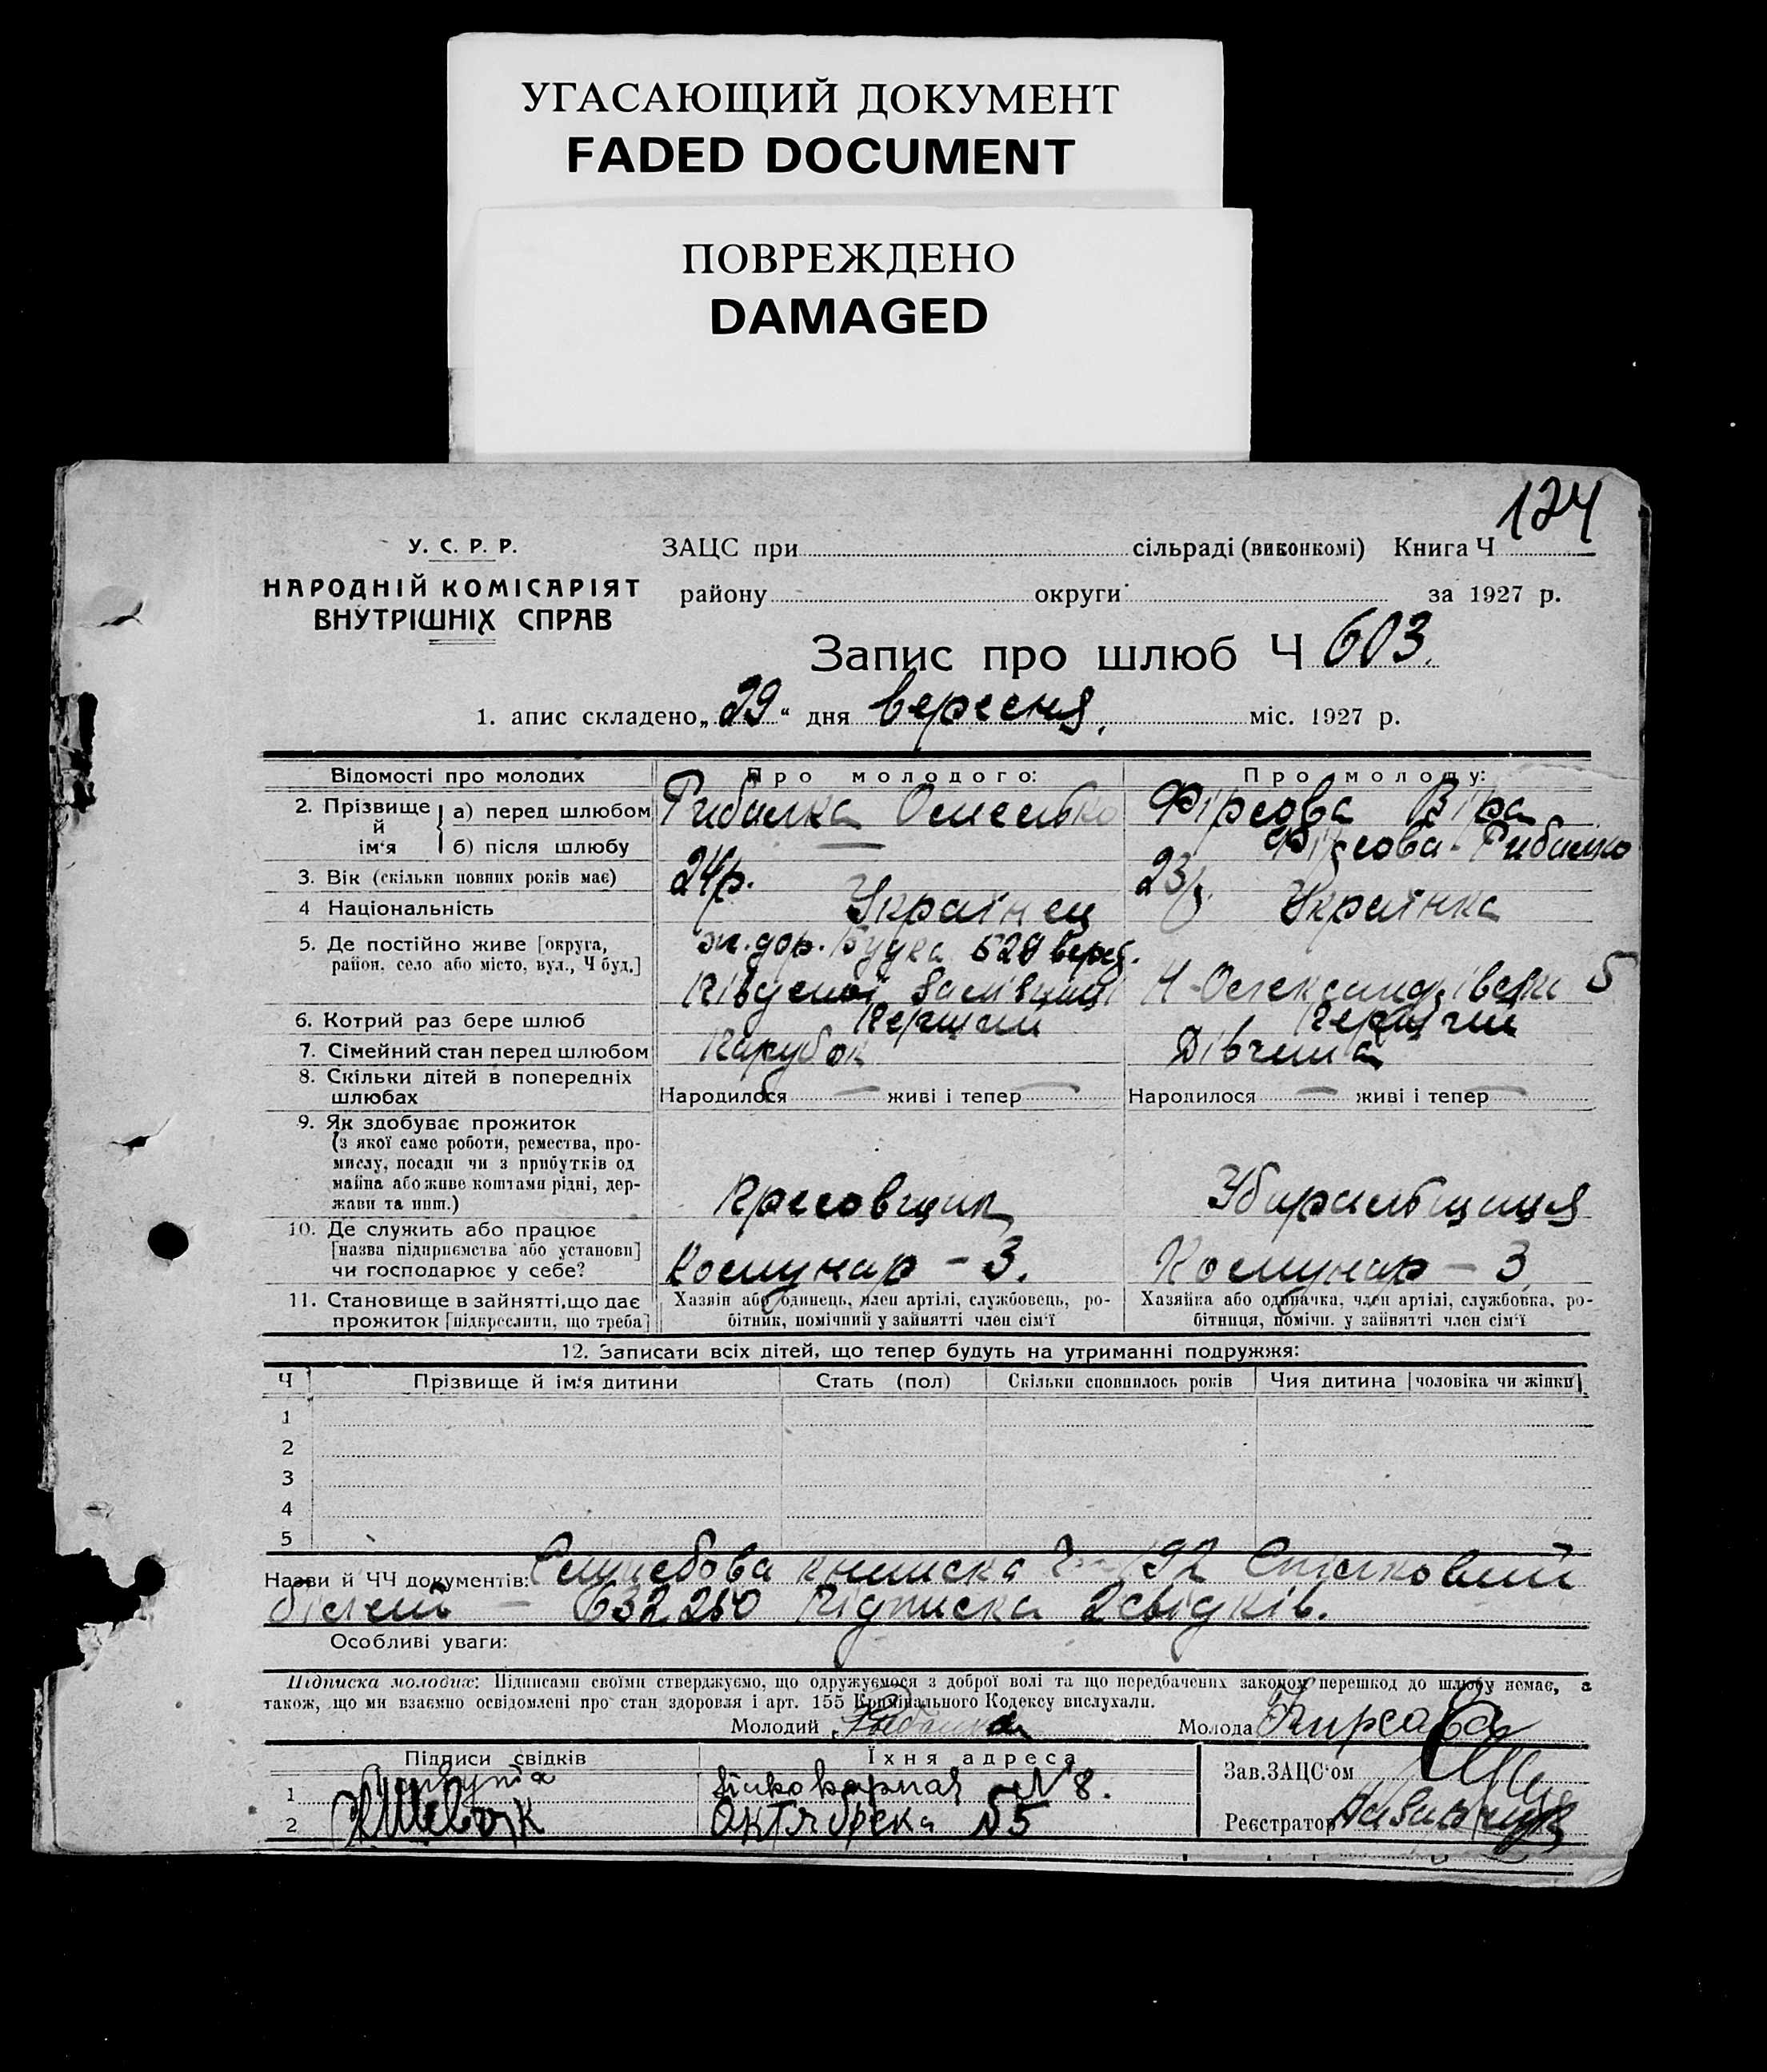 УГАСАЮЩИЙ ДОКУМЕНТ
FADED DOCUMENT
ПОВРЕЖДЕНО
DAMAGED
124
У. С. Р. Р.
НАРОДНІЙ КОМІСАРІЯТ
ВНУТРІШНІХ СПРАВ
ЗАЦС при сільраді (виконкомі) Книга Ч
району округи за 1927 р.
Запис про шлюб Ч 603.
1. апис складено „29“ дня вересня, міс. 1927 р.
Відомості про молодих
Про молодого:
Про молоду:
2. Прізвище й ім'я
а) перед шлюбом
Рибалка Омелько
Фірсова Віра
б) після шлюбу
Фірсова-Рибалко
3. Вік (скільки повних років має)
24р.
23р.
4 Національність
Українец
Українка
5. Де постійно живе [округа,
район, село або місто, вул., Ч буд.]
зн. дор. Будка 529 верс.
Південої Залізниці
Н-Олександрівськ 5
6. Котрий раз бере шлюб
Перший
Перший
7. Сімейний стан перед шлюбом
Парубок
Дівчина
8. Скільки дітей в попередніх
шлюбах
Народилося — живі і тепер —
Народилося — живі і тепер —
9. Як здобуває прожиток
(з якої саме роботи, ремества, про-
мислу, посади чи з прибутків од
майна або живе коштами рідні, дер-
жави та инш.)
Пресовщик
Убиральщиця
10. Де служить або працює
[назва підприємства або установи]
чи господарює у себе?
Комунар - 3.
Комунар - 3
11. Становище в зайнятті, що дає
прожиток [підкреслити, що треба]
Хазяїн або одинець, член артілі, службовець, ро-
бітник, помічний у зайнятті член сім'ї
Хазяйка або одиначка, член артілі, службовка, ро-
бітниця, помічн. у зайнятті член сім'ї
12. Записати всіх дітей, що тепер будуть на утриманні подружжя:
Ч
Прізвище й ім'я дитини
Стать (пол)
Скільки сповнилось років
Чия дитина [чоловіка чи жінки]
1
2
3
4
5
Назви й ЧЧ документів: Службова книжка 192 Спілковий
білет — 632250 Підписка 2 свідків.
Особливі уваги:
Підписка молодих: Підписами своїми стверджуємо, що одружуємося з доброї волі та що передбачених законом перешкод до шлюбу немає, а
також, що ми взаємно освідомлені про стан здоровля і арт. 155 Кримінального Кодексу вислухали.
Молодий Рыбалка
Молода Фирсова
Підписи свідків
Їхня адреса
Зав. ЗАЦС'ом
1
№ 8.
2
Октябрска 55
Реєстратор